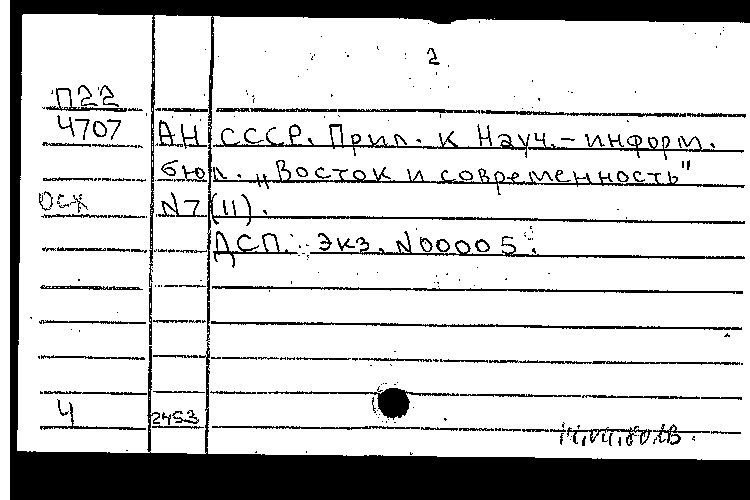 2
П22
4707 АН СССР. Прил. к Науч.-информ.
бюл. „Восток и современность"
ОСХ N7 (11).
ДСП. Экз. N00005.
4 2453